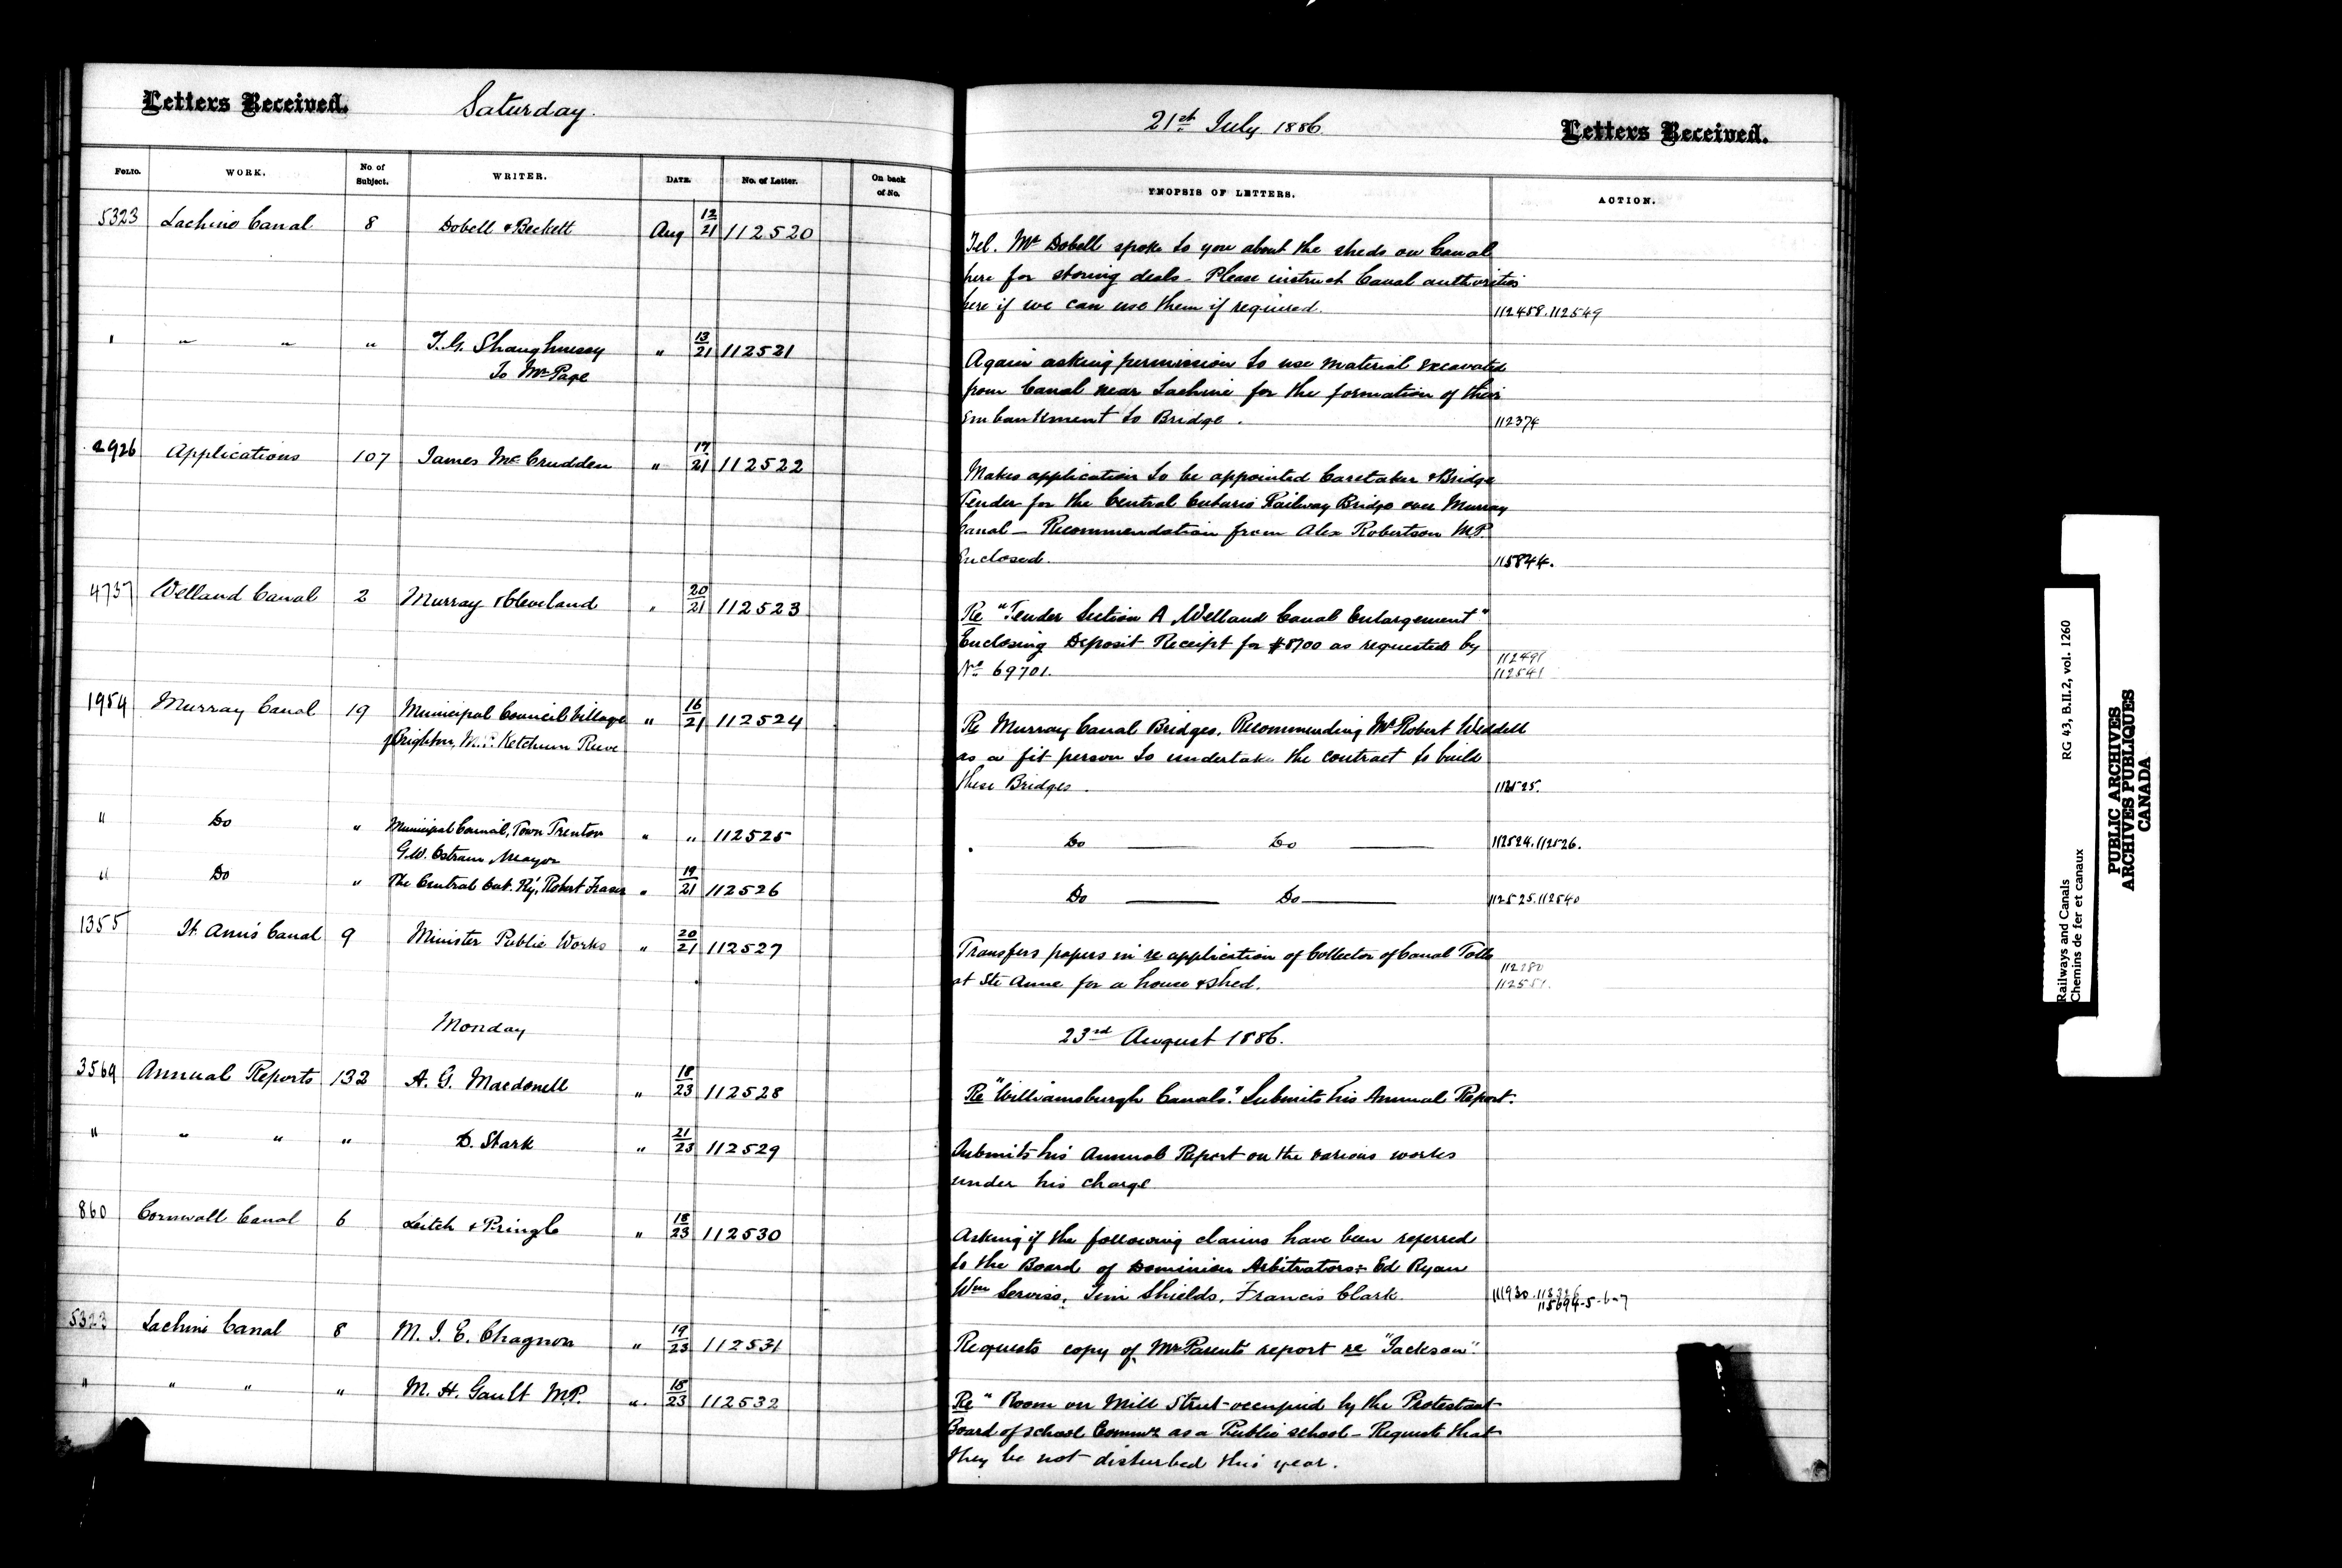 Letters Received. Saturday. 21st July 1886 Letters Received.
FOLIO. WORK. No of Subject. WRITER. DATE. No. of Letter. On back of No. YNOPSIS OF LETTERS. ACTION.
5323 Lachine Canal 8 Dobell & Beckett Aug 12/21 112520
Tel. Mr Dobell spoke to you about the sheds on Canal
here for storing deals – Please instruct Canal authorities
here if we can use them if required. 112458.112549
" " " " T. G. Shaughnessy " 13/21 112521
To Mr Page
Again asking permission to use material excavated
from Canal near Lachine for the formation of their
Embankment to Bridge. 112374
2926 Applications 107 James McCrudden " 17/21 112522
Makes application to be appointed Caretaker & Bridge
Tender for the Central Ontario Railway Bridge over Murray
Canal – Recommendation from Alex Robertson M.P.
Enclosed. 115824.
4737 Welland Canal 2 Murray & Cleveland " 20/21 112523
Re "Tender Section A Welland Canal Enlargement"
Enclosing Deposit Receipt for $8700 as requested by
No 69701. 112491
112541
1954 Murray Canal 19 Municipal Council Village " 16/21 112524
of Brighton, M.P. Ketchum Reeve
Re Murray Canal Bridges. Recommending Mr Robert Weddell
as a fit person to undertake the contract to build
these Bridges. 112525.
" Do " Municipal Council, Town Trenton " " 112525
G.W. Ostrom, Mayor
Do Do 112524.112526.
" Do " The Central Ont. Ry, Robert Fraser " 19/21 112526
Do Do 112525.112540
1355 St. Ann's Canal 9 Minister Public Works " 20/21 112527
Transfers papers in re application of Collector of Canal Tolls
at Ste Anne for a house & shed.
Monday 23rd August 1886.
3569 Annual Reports 132 A. G. Macdonell " 18/23 112528
Re "Williamsburgh Canals." Submits his Annual Report.
" " " " D. Stark " 21/23 112529
Submits his Annual Report on the various works
under his charge
860 Cornwall Canal 6 Leitch & Pringle " 18/23 112530
Asking if the following claims have been referred
to the Board of Dominion Arbitrators: Ed Ryan
Wm Serviss, Jim Shields, Francis Clark. 111930.
115694-5-6-7
5323 Lachine Canal 8 M. J. E. Chagnon " 19/23 112531
Requests copy of Mr Parent's report re "Jackson".
" " " " M. H. Gault M.P. " 18/23 112532
Re "Room on Mill Street occupied by the Protestant
Board of School Commrs as a Public school – Requests that
they be not disturbed this year.
Railways and Canals RG 43, B.II.2, vol. 1260
Chemins de fer et canaux
PUBLIC ARCHIVES
ARCHIVES PUBLIQUES
CANADA